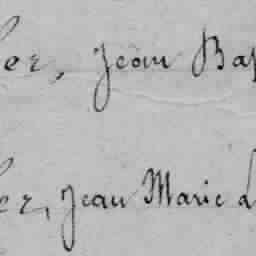 er, Jean Bap
er, Jean Marie L